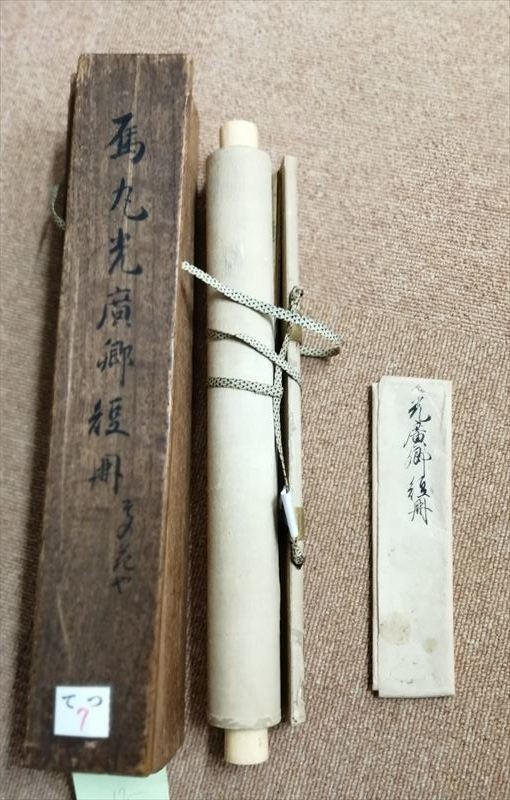 烏丸光廣卿短冊
てつ
7
光廣卿短冊